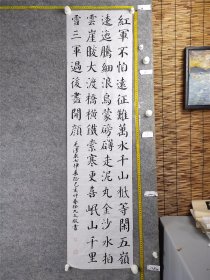 紅軍不怕遠征難萬水千山祇等閒五嶺
逶迤騰細浪烏蒙磅礴走泥丸金沙水拍
雲崖暖大渡橋橫鐵索寒更喜岷山千里
雪三軍過後盡開顏
毛澤東七律長征己亥仲春